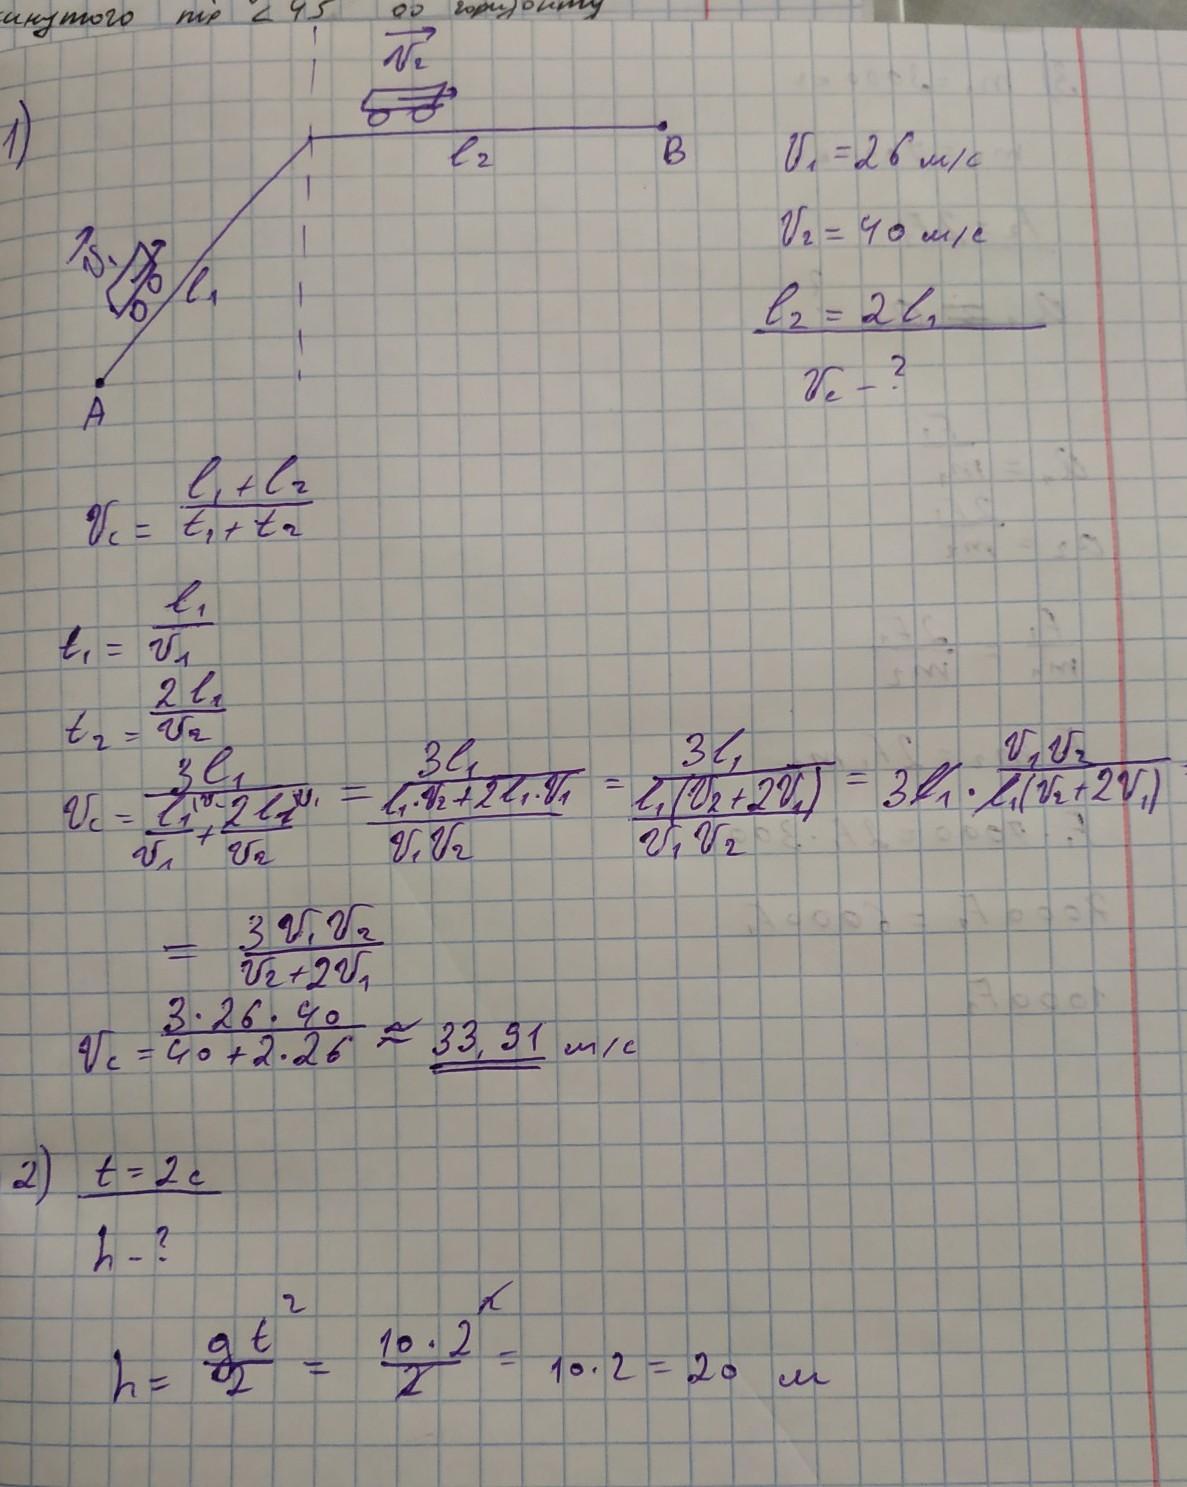 кинутого під < 45 до горизонту
1)
v₂
l₂
B
v₁
l₁
A
v₁ = 26 м/с
v₂ = 40 м/с
l₂ = 2l₁
vc - ?
vc = (l₁ + l₂)/(t₁ + t₂)
t₁ = l₁/v₁
t₂ = 2l₁/v₂
vc = 3l₁/(l₁/v₁ + 2l₁/v₂) = 3l₁/((l₁·v₂ + 2l₁·v₁)/(v₁v₂)) = 3l₁/(l₁(v₂ + 2v₁)/(v₁v₂)) = 3l₁ · v₁v₂/(l₁(v₂ + 2v₁)) =
= 3v₁v₂/(v₂ + 2v₁)
vc = (3·26·40)/(40 + 2·26) ≈ 33,91 м/с
2) t = 2c
h - ?
h = gt²/2 = 10·2²/2 = 10·2 = 20 м